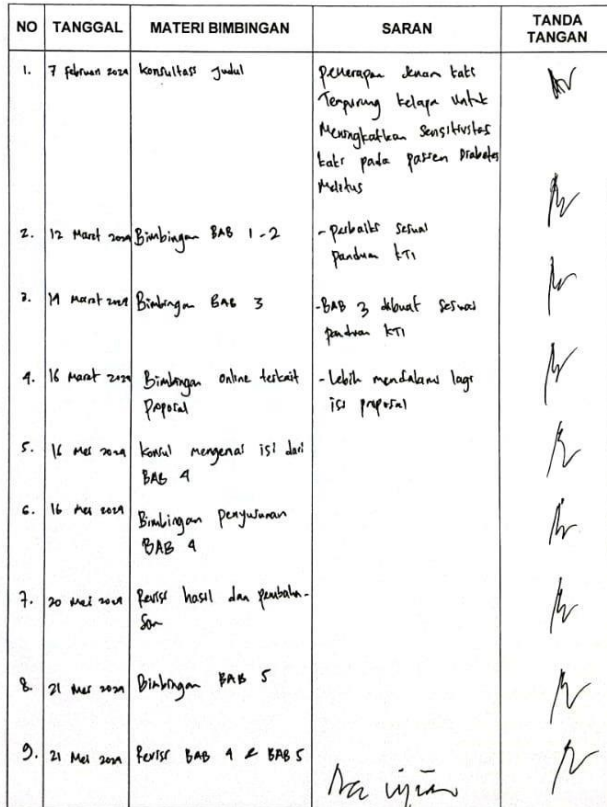 NO TANGGAL MATERI BIMBINGAN SARAN TANDA TANGAN
1. 7 Februari 2024 Konsultasi Judul Penerapan Senam kaki
Tempurung kelapa Untuk
Meningkatkan Sensitivitas
kaki pada pasien Diabetes
Melitus
2. 12 Maret 2024 Bimbingan BAB 1-2 - perbaiki sesuai
panduan KTI
3. Maret 2024 Bimbingan BAB 3 - BAB 3 dibuat sesuai
panduan KTI
4. 16 Maret 2024 Bimbingan online terkait - Lebih mendalami lagi
Proposal isi proposal
5. 16 Mei 2024 Konsul mengenai isi dari
BAB 4
6. 16 Mei 2024 Bimbingan penyusunan
BAB 4
7. 20 Mei 2024 Revisi hasil dan pembaha-
san
8. 21 Mei 2024 Bimbingan BAB 5
9. 21 Mei 2024 Revisi BAB 4 & BAB 5
Acc ujian